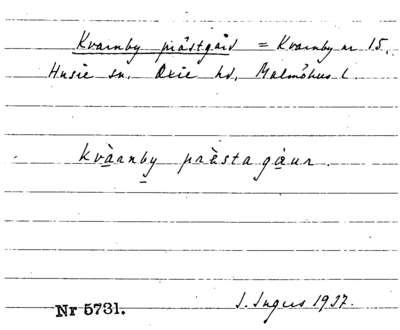 Kvarnby prästgård = Kvarnby nr 15,
Husie sn. Oxie hd, Malmöhus l.
Kvàrnby præ̀stagáur.
Nr 5731. J. Ingers 1937.